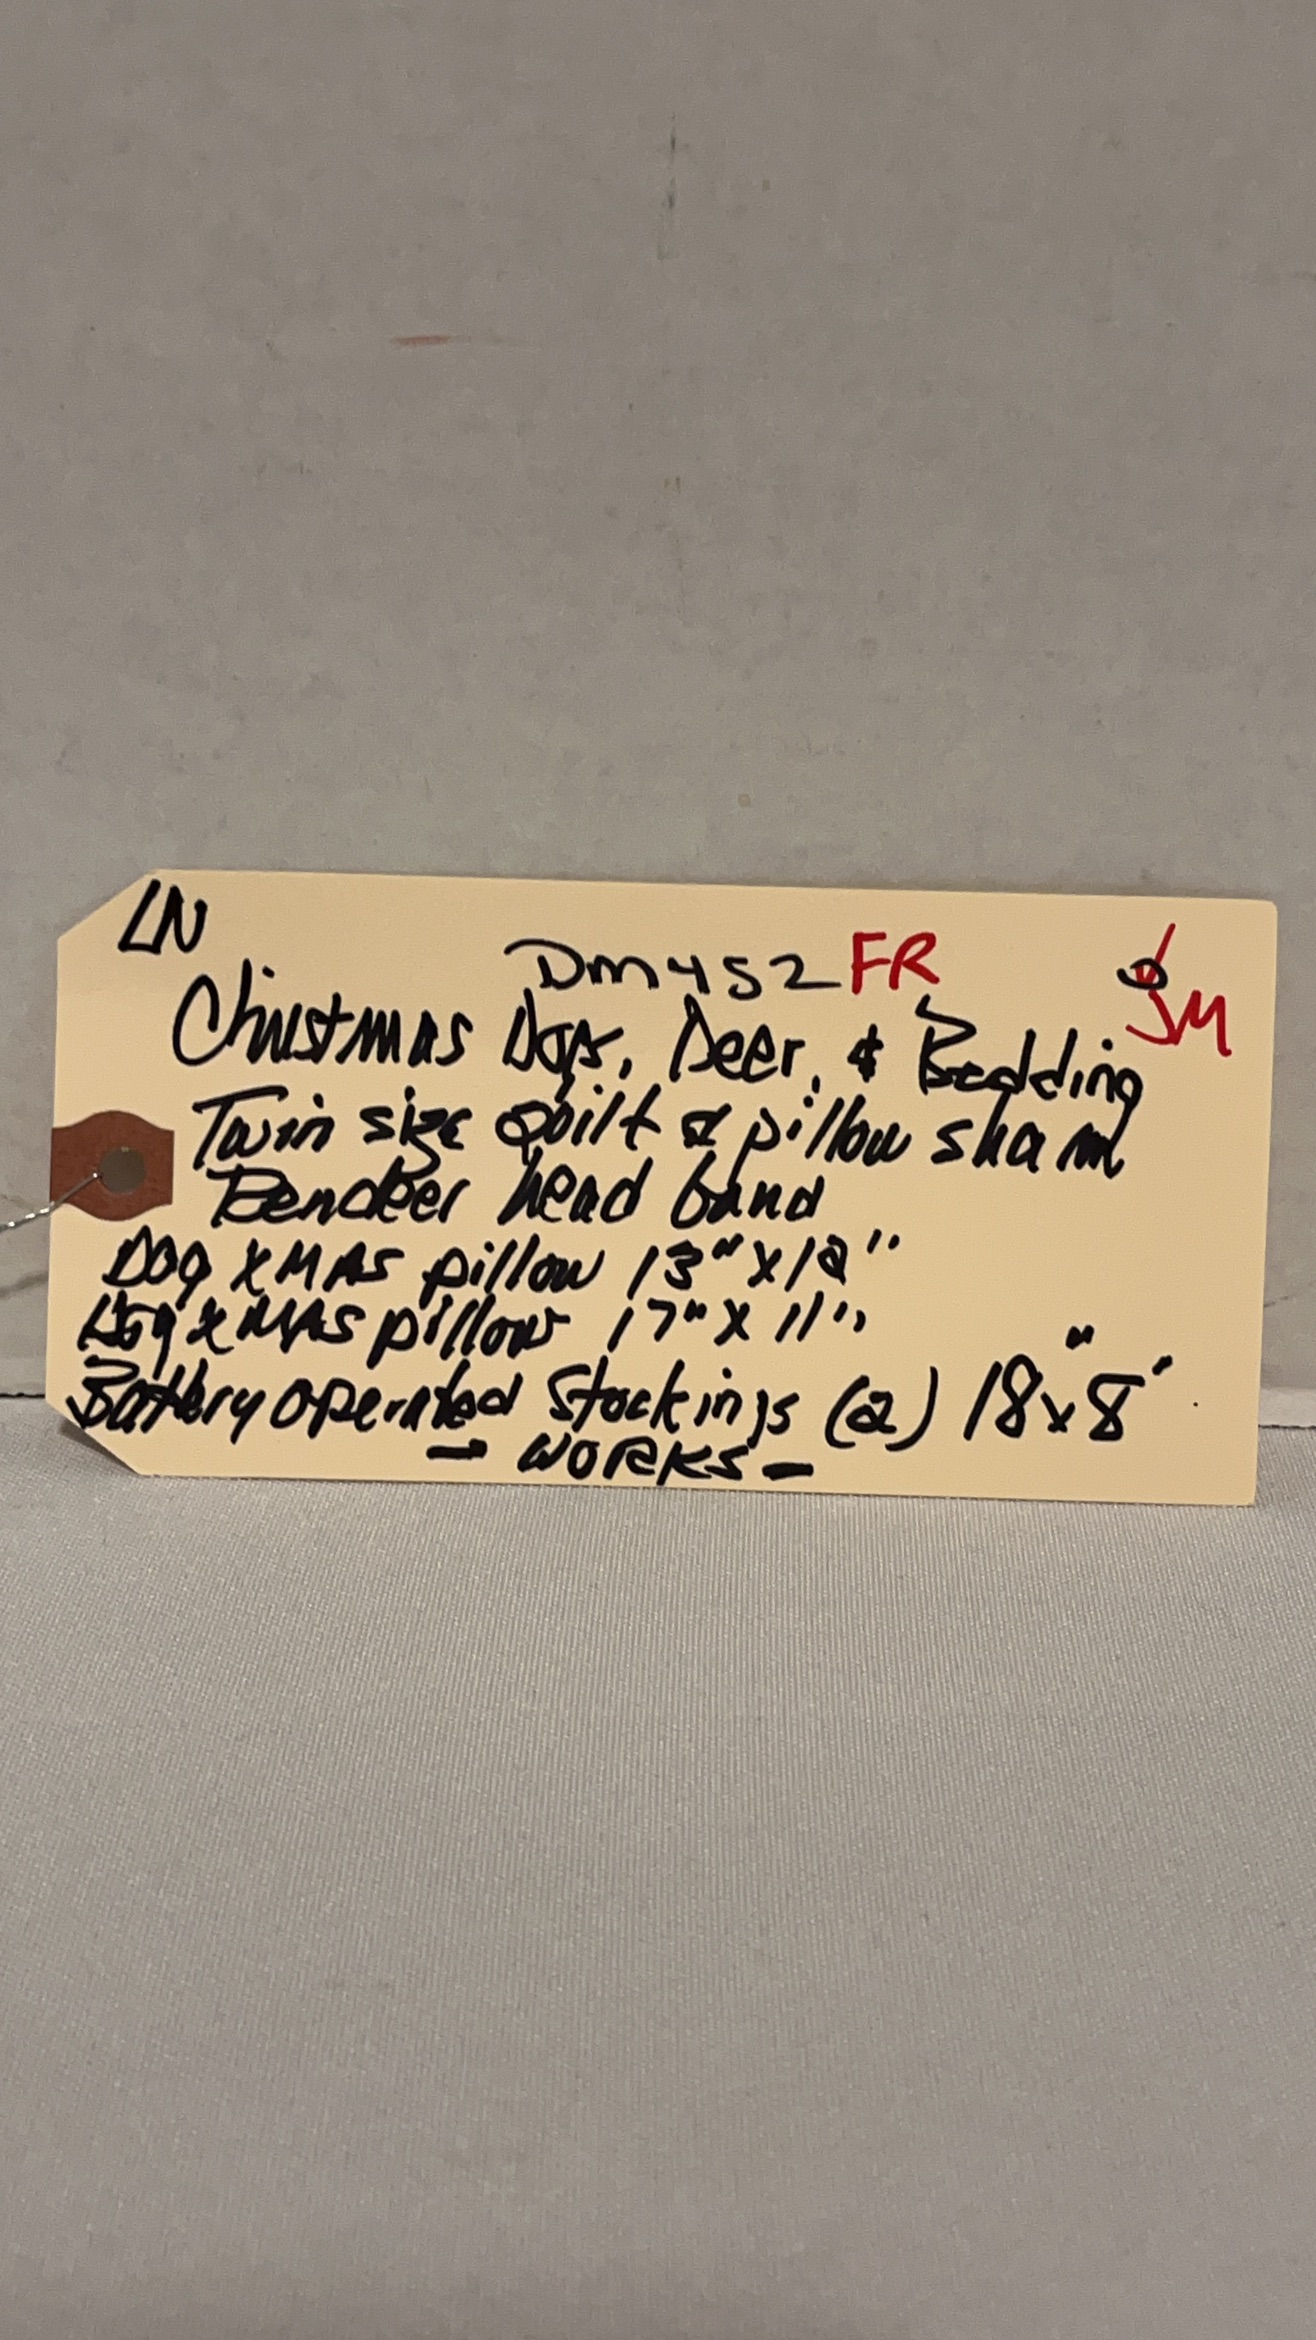 LN
Dm452 FR
JM
Christmas Dogs, Deer, & Bedding
Twin size Quilt & pillow sham
Reindeer head band
Dog XMAS pillow 13" X 12"
Dog XMAS pillow 17" X 11"
Battery operated Stockings (2) 18" x 8"
- WORKS -